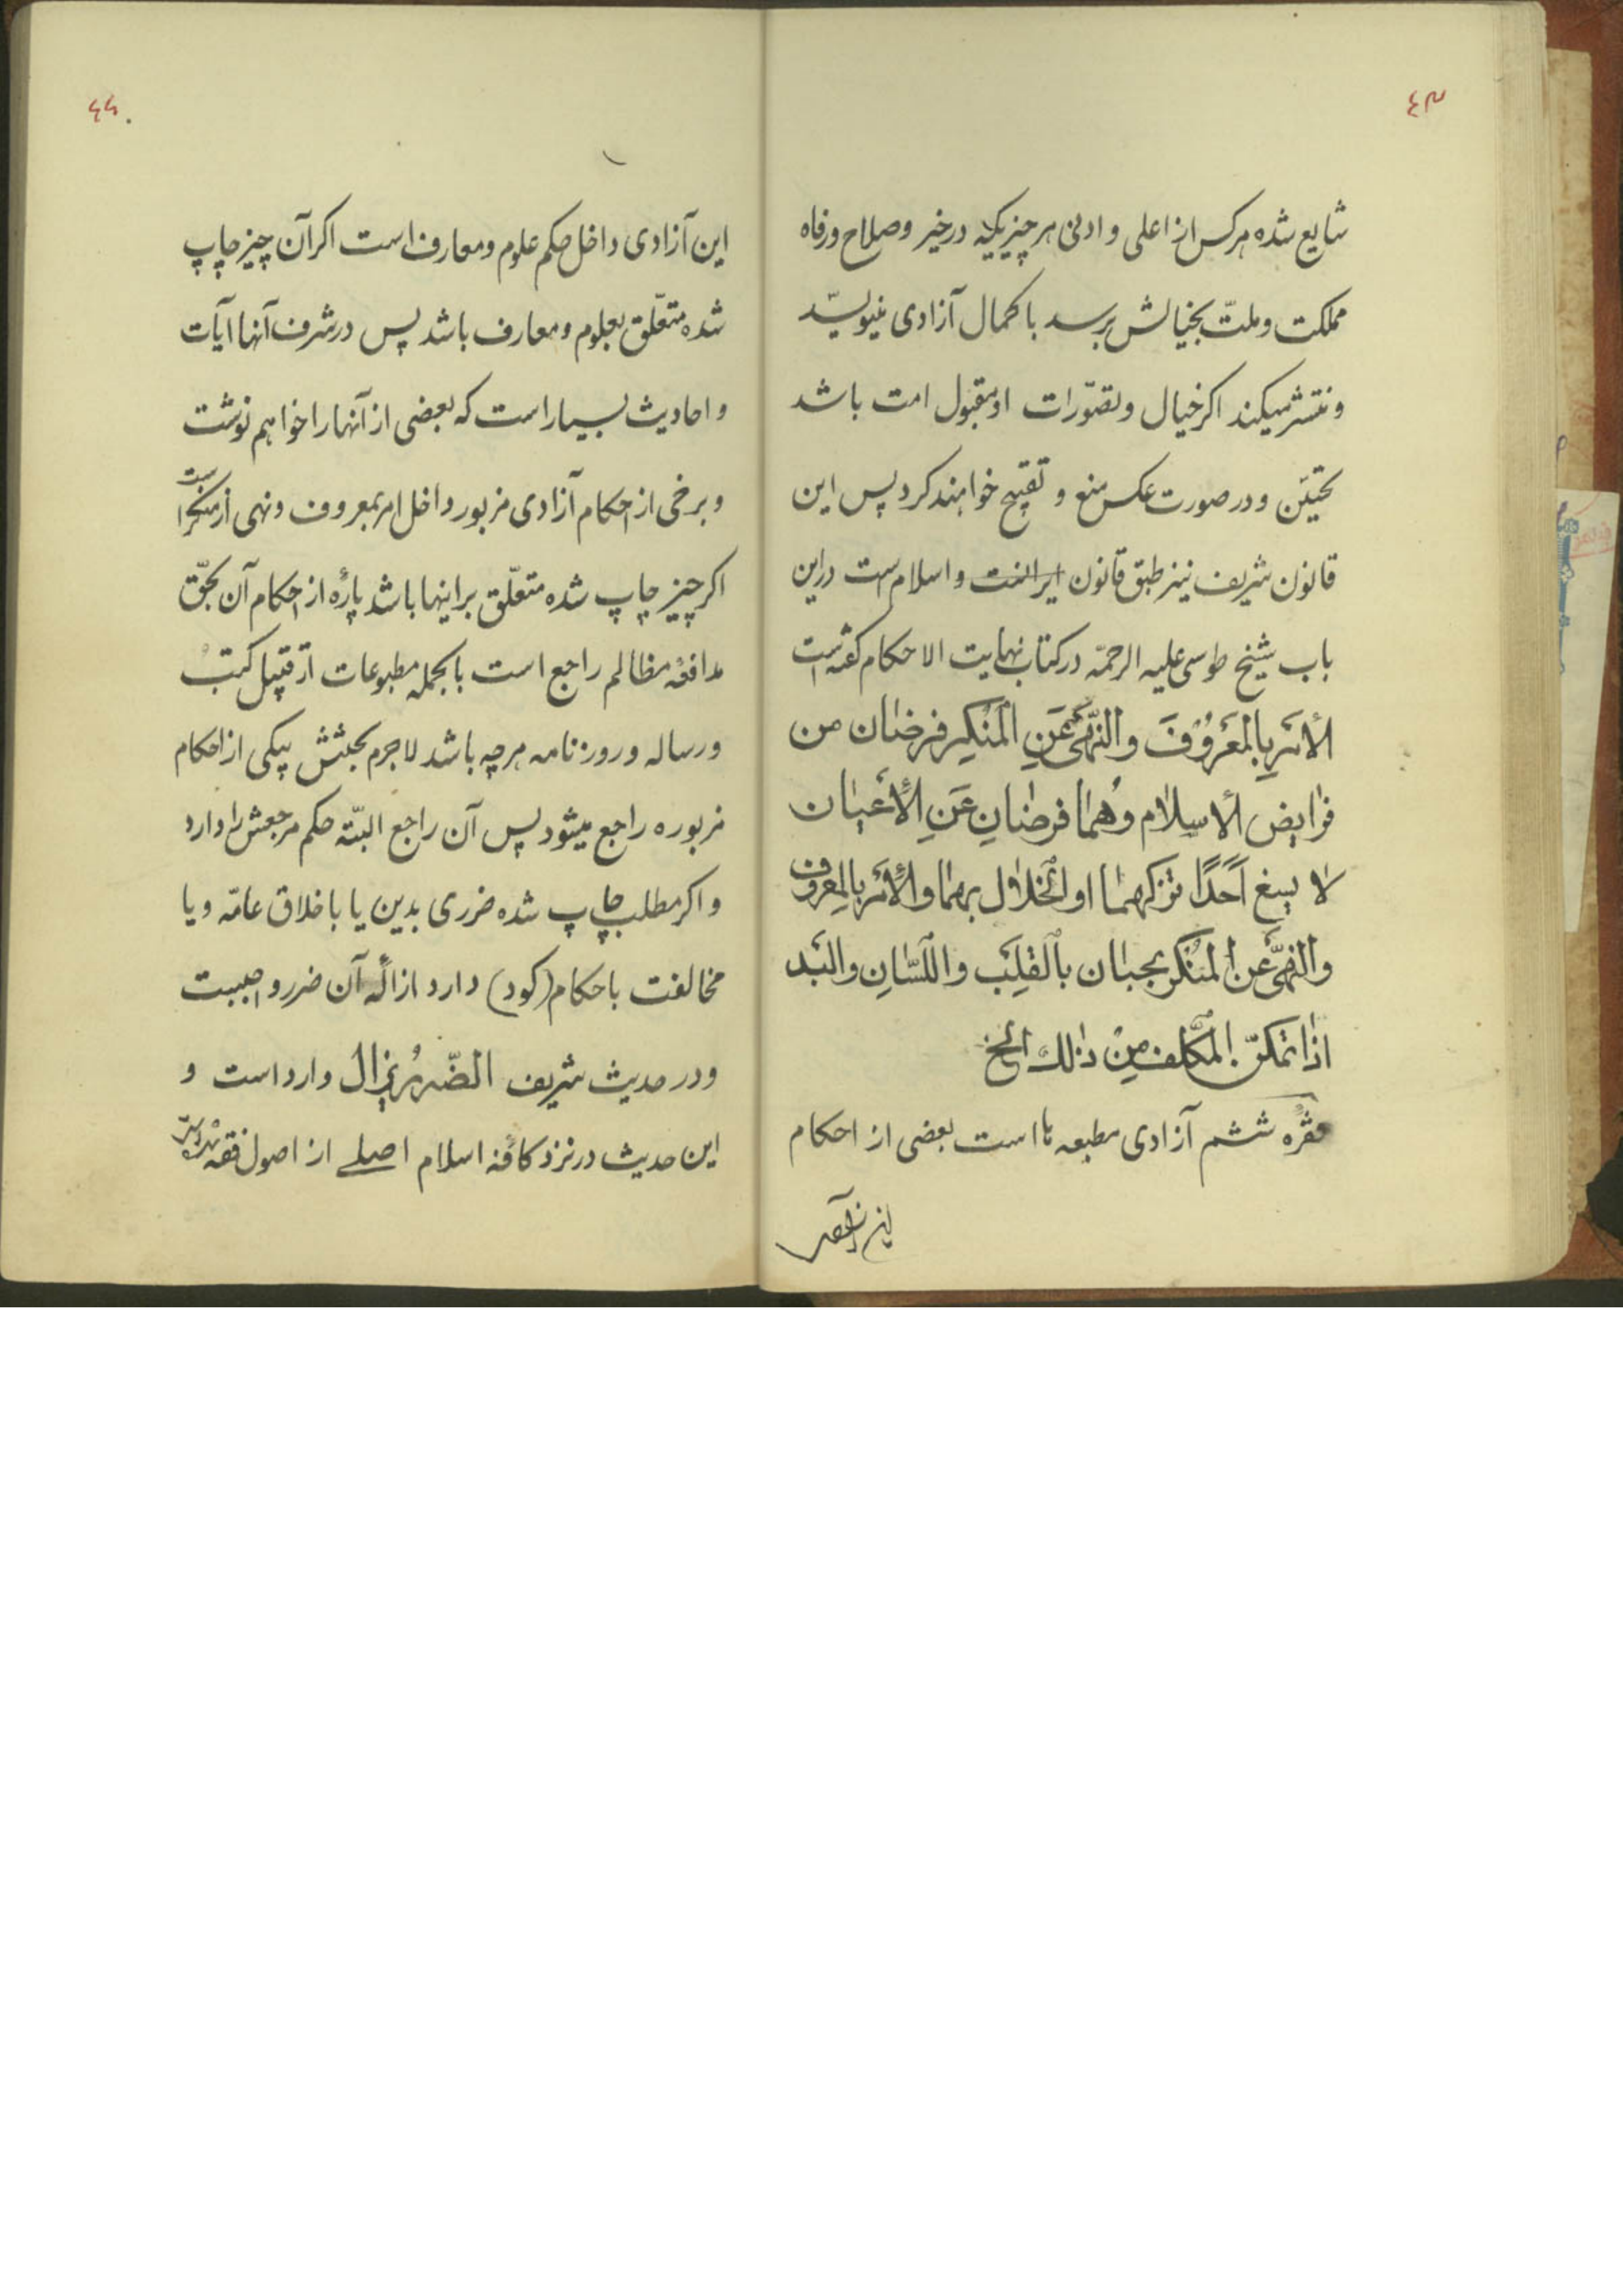 ٤٣
شایع شده هرکس از اعلی و ادنی هر چیزیکه در خیر و صلاح و رفاه
مملکت و ملتّ بخیالش برسد با کمال آزادی مینویسد
و منتشر میکند اکر خیال و تصوّرات او مقبول امت باشد
تحسین و در صورت عکس منع و تقبیح خواهند کرد پس این
قانون شریف نیز طبق قانون و اسلام است در این
باب شیخ طوسی علیه الرحمّه در کتاب نهایت الاحکام کفته است
الأمر بالمعروف والنّهی عن المنکر فرضان من
فرایض الأسلام وهما فرضان عن الأعیان
لا یسع احداً ترکهما او الخلال بهما والأمر بالمعروف
والنهی عن المنکر یجبان بالقلب واللسّان والید
اذا تمکن المکلف من ذلك الخ
فقره ششم آزادی مطبعه ها است بعضی از احکام
این آزادی
٤٤
این آزادی داخل حکم علوم و معارف است اکر آن چیز چاپ
شده متعّلق بعلوم و معارف باشد پس در شرف آنها آیات
و احادیث بسیار است که بعضی از آنها را خواهم نوشت
و برخی از احکام آزادی مزبور داخل امر بمعروف و نهی از منکر است
اکر چیز چاپ شده متعلّق براینها باشد پارهٔ از احکام آن بحقّ
مدافعهٔ مظالم راجع است بالجمله مطبوعات از قبیل کتب
و رساله و روزنامه هرچه باشد لاجرم بحثش بیکی از احکام
مزبوره راجع میشود پس آن راجع البتّه حکم مرجعش را دارد
و اکر مطلب چاپ شده ضرری بدین یا باخلاق عامّه و یا
مخالفت باحکام (کود) دارد ازالهٔ آن ضرر واجبست
و در حدیث شریف الضّرر یزال وارد است و
این حدیث در نزد کافهٔ اسلام اصلی از اصول فقه شده است